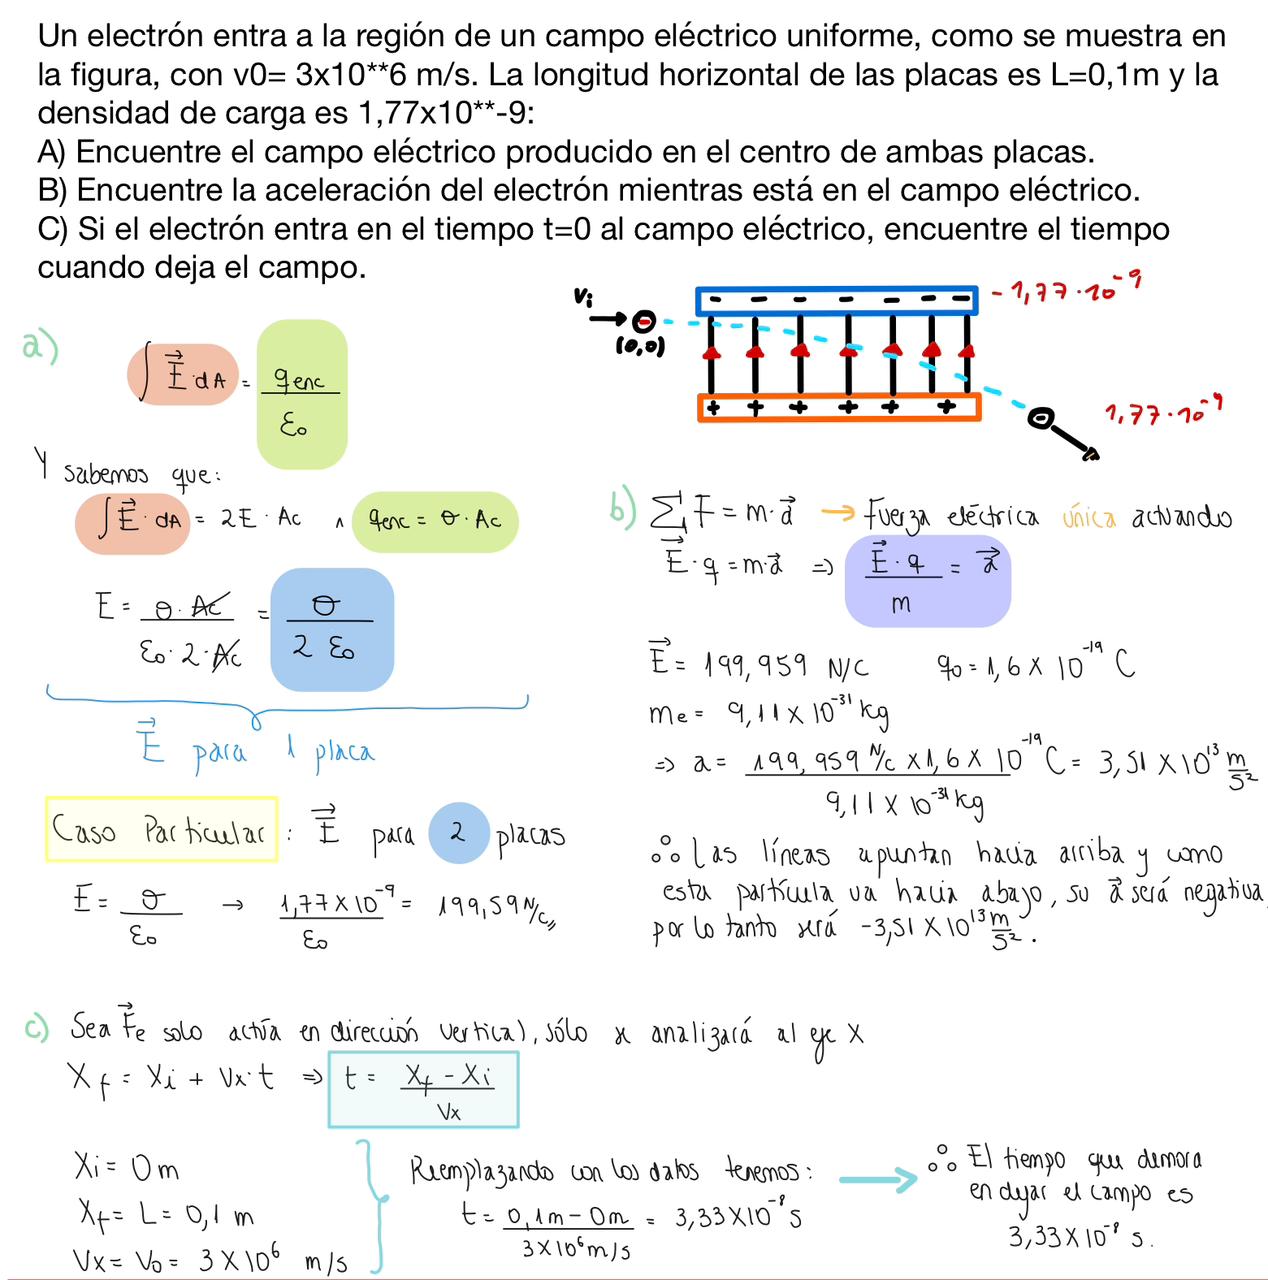 Un electrón entra a la región de un campo eléctrico uniforme, como se muestra en
la figura, con v0= 3x10**6 m/s. La longitud horizontal de las placas es L=0,1m y la
densidad de carga es 1,77x10**-9:
A) Encuentre el campo eléctrico producido en el centro de ambas placas.
B) Encuentre la aceleración del electrón mientras está en el campo eléctrico.
C) Si el electrón entra en el tiempo t=0 al campo eléctrico, encuentre el tiempo
cuando deja el campo.
Vi
(0,0)
- - - - - - -
-1,77·10⁻⁹
+ + + + + +
1,77·10⁻⁹
a)
∫ E⃗ · dA = qenc / ε₀
Y sabemos que:
∫ E⃗ · dA = 2E · Ac ∧ qenc = σ · Ac
E = σ · Ac / ε₀ · 2 · Ac = σ / 2 ε₀
E⃗ para 1 placa
Caso Particular : E⃗ para 2 placas
E = σ / ε₀ → 1,77 x 10⁻⁹ / ε₀ = 199,59 N/C,,
b) ∑ F⃗ = m · a⃗ → Fuerza eléctrica única actuando
E⃗ · q = m · a⃗ ⇒ E⃗ · q / m = a⃗
E⃗ = 199,959 N/C q₀ = 1,6 x 10⁻¹⁹ C
me = 9,11 x 10⁻³¹ kg
⇒ a = 199,959 N/C x 1,6 x 10⁻¹⁹ C / 9,11 x 10⁻³¹ kg = 3,51 x 10¹³ m/s²
∴ Las líneas apuntan hacia arriba y como
esta partícula va hacia abajo, su a⃗ será negativa,
por lo tanto será -3,51 x 10¹³ m/s².
c) Sea F⃗e solo actúa en dirección vertical, sólo se analizará al eje X
Xf = Xi + Vx · t ⇒ t = Xf - Xi / Vx
Xi = 0m
Xf = L = 0,1 m
Vx = V₀ = 3 x 10⁶ m/s
Reemplazando con los datos tenemos:
t = 0,1m - 0m / 3 x 10⁶ m/s = 3,33 x 10⁻⁸ s
∴ El tiempo que demora
en dejar el campo es
3,33 x 10⁻⁸ s.